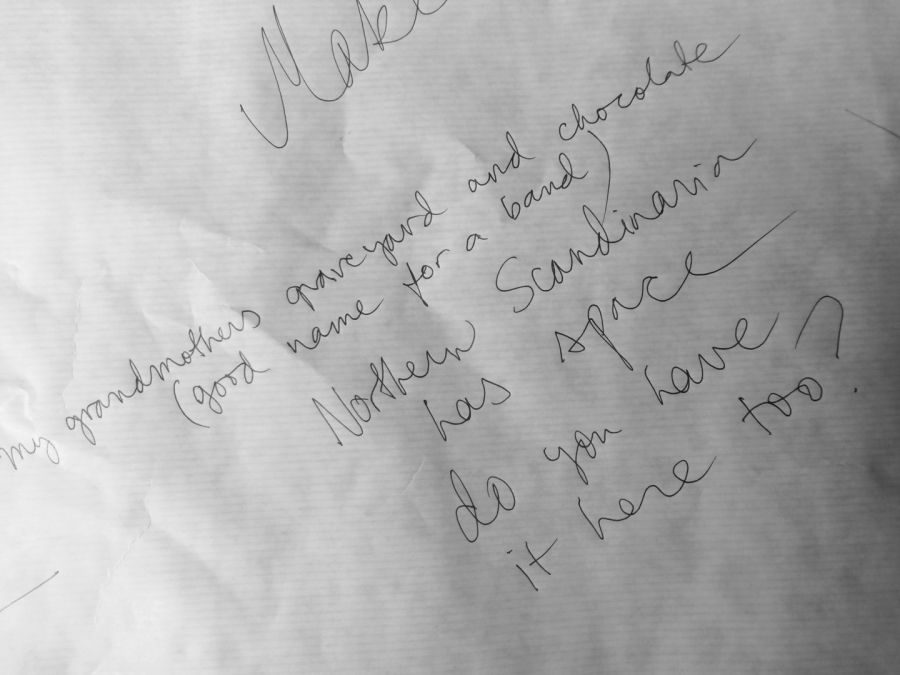 Make
my grandmothers graveyard and chocolate
(good name for a band)
Northern Scandinavia
has space
do you have
it here too?